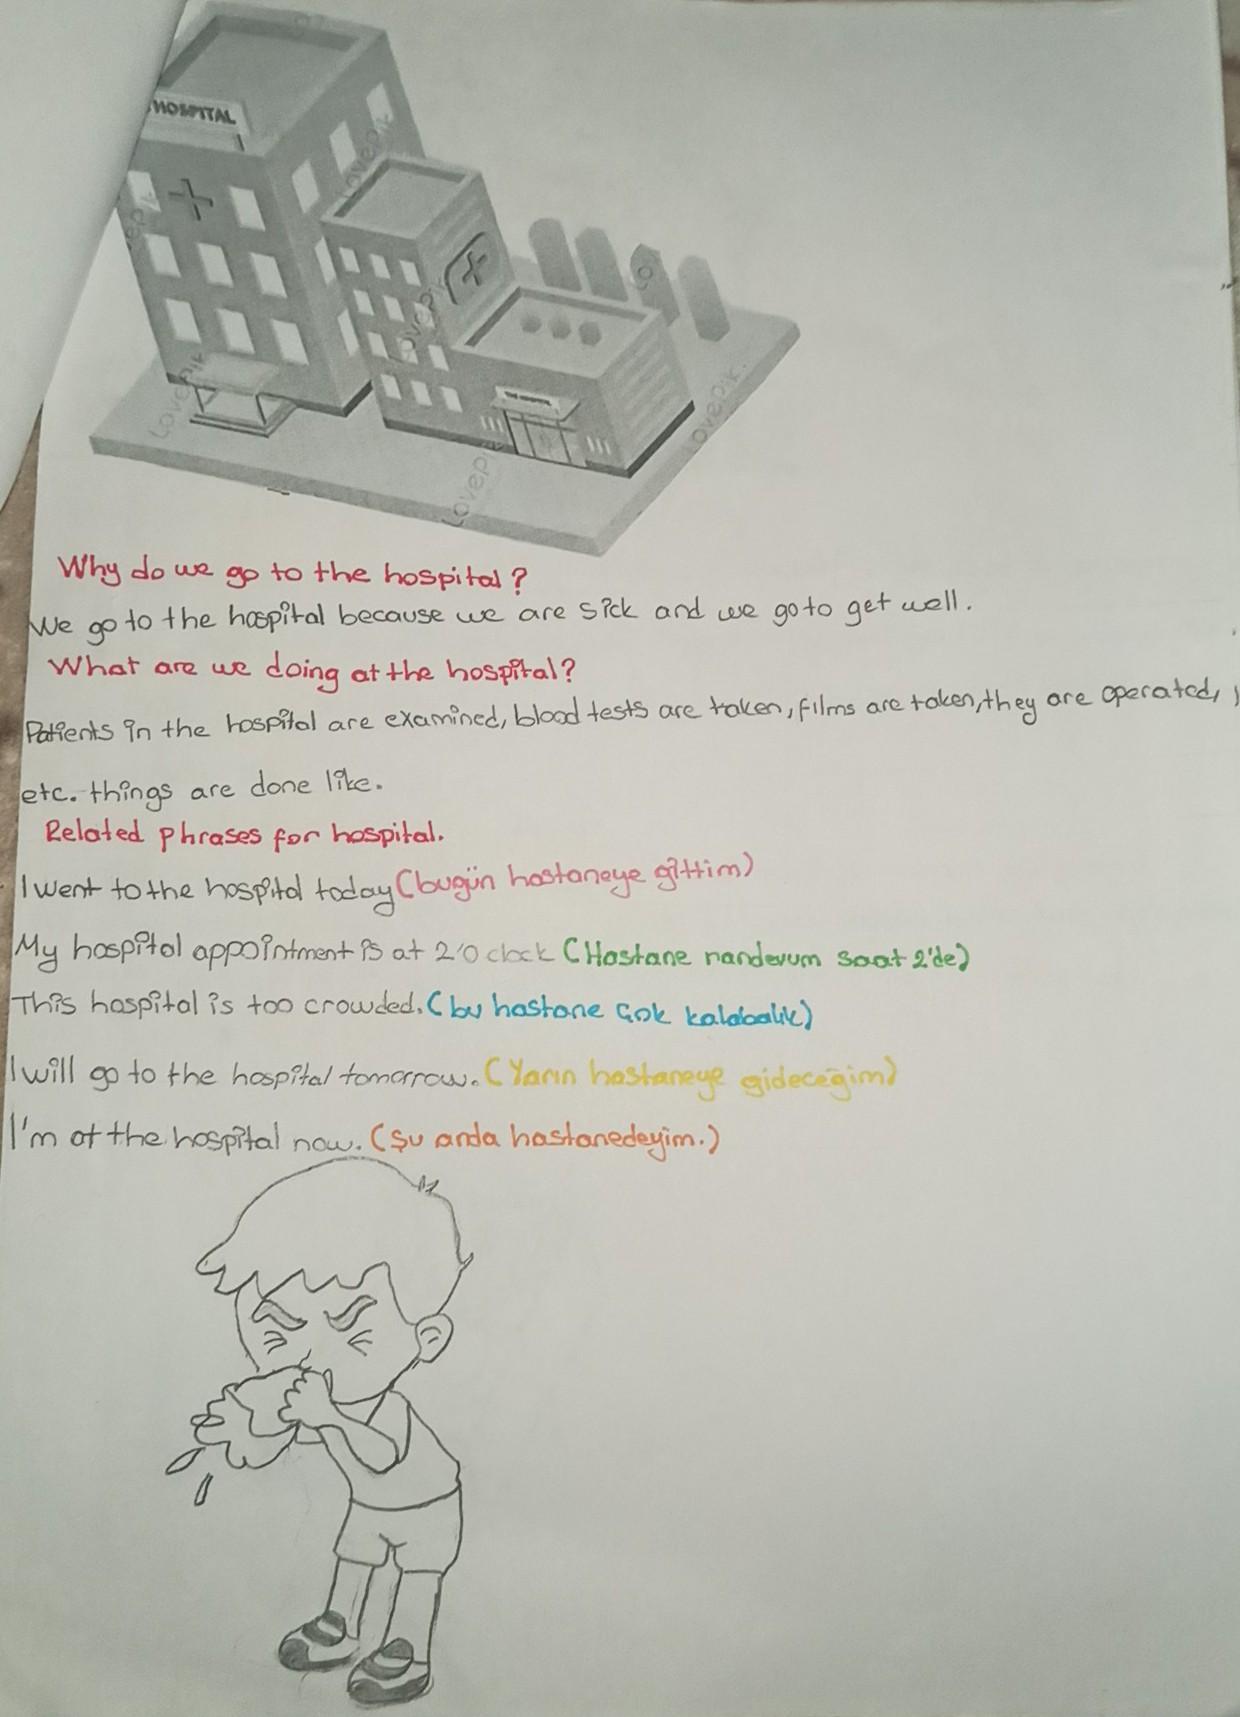 HOSPITAL
THE HOSPITAL
Lovepik
Lovepik
Lovepik
Lovepik
Lovepik
Why do we go to the hospital?
We go to the hospital because we are sick and we go to get well.
What are we doing at the hospital?
Patients in the hospital are examined, blood tests are taken, films are taken, they are operated,
etc. things are done like.
Related phrases for hospital.
I went to the hospital today (bugün hastaneye gittim)
My hospital appointment is at 2'O clock (Hastane randevum saat 2'de)
This hospital is too crowded. (bu hastane çok kalabalık)
I will go to the hospital tomorrow. (Yarın hastaneye gideceğim)
I'm at the hospital now. (Şu anda hastanedeyim.)